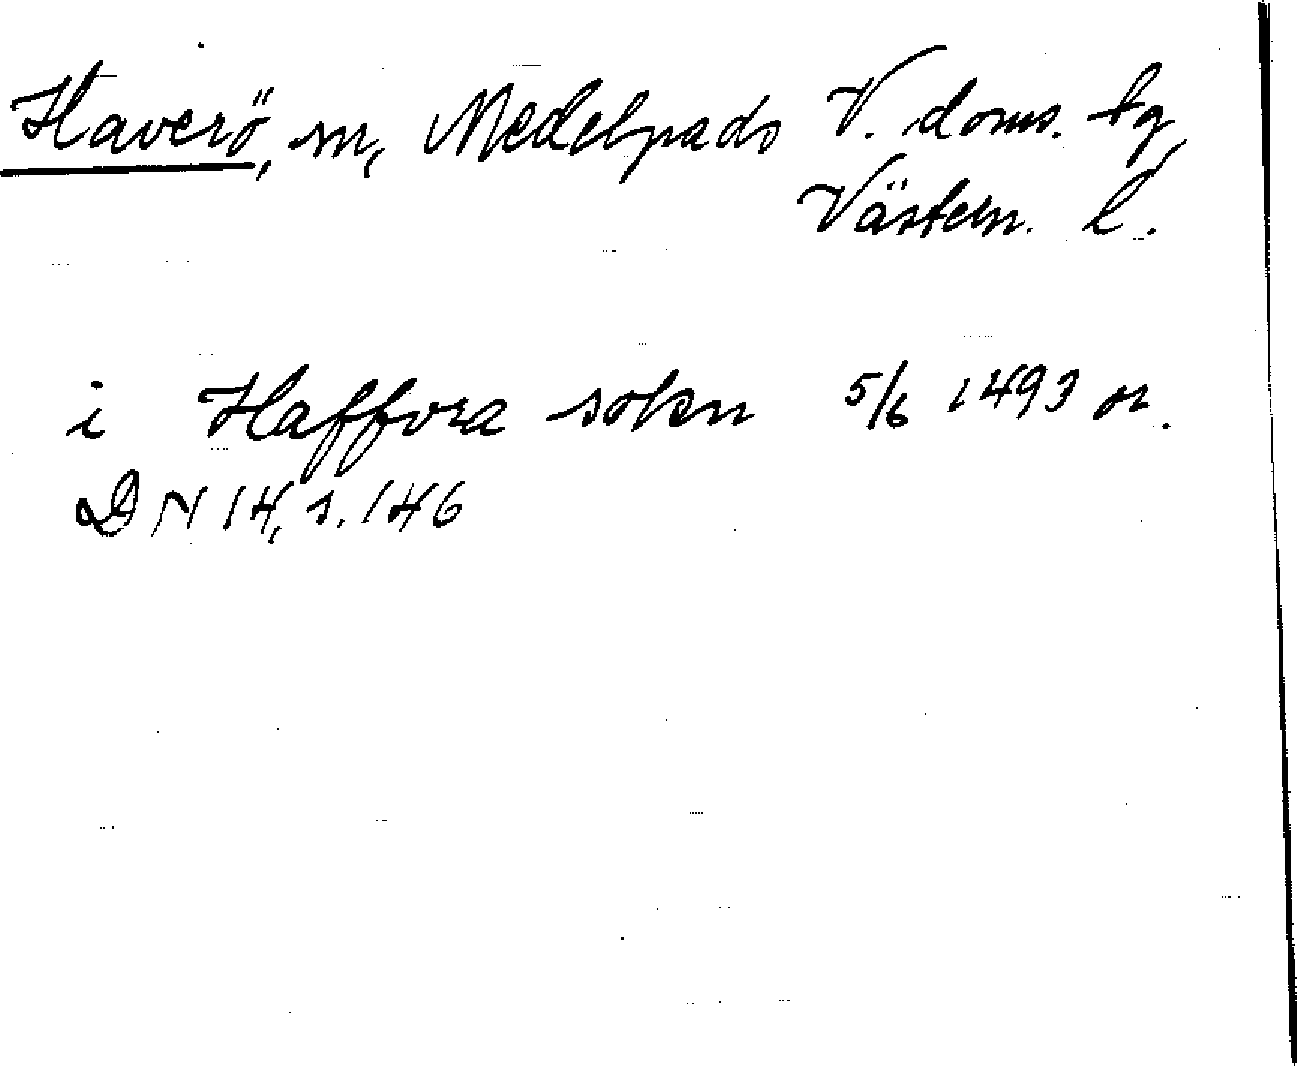 Haverö, sn, Medelpads V. doms. tg,
Västern. l.
i Haffvra sokn 5/6 1493 or.
DN 14, s. 146